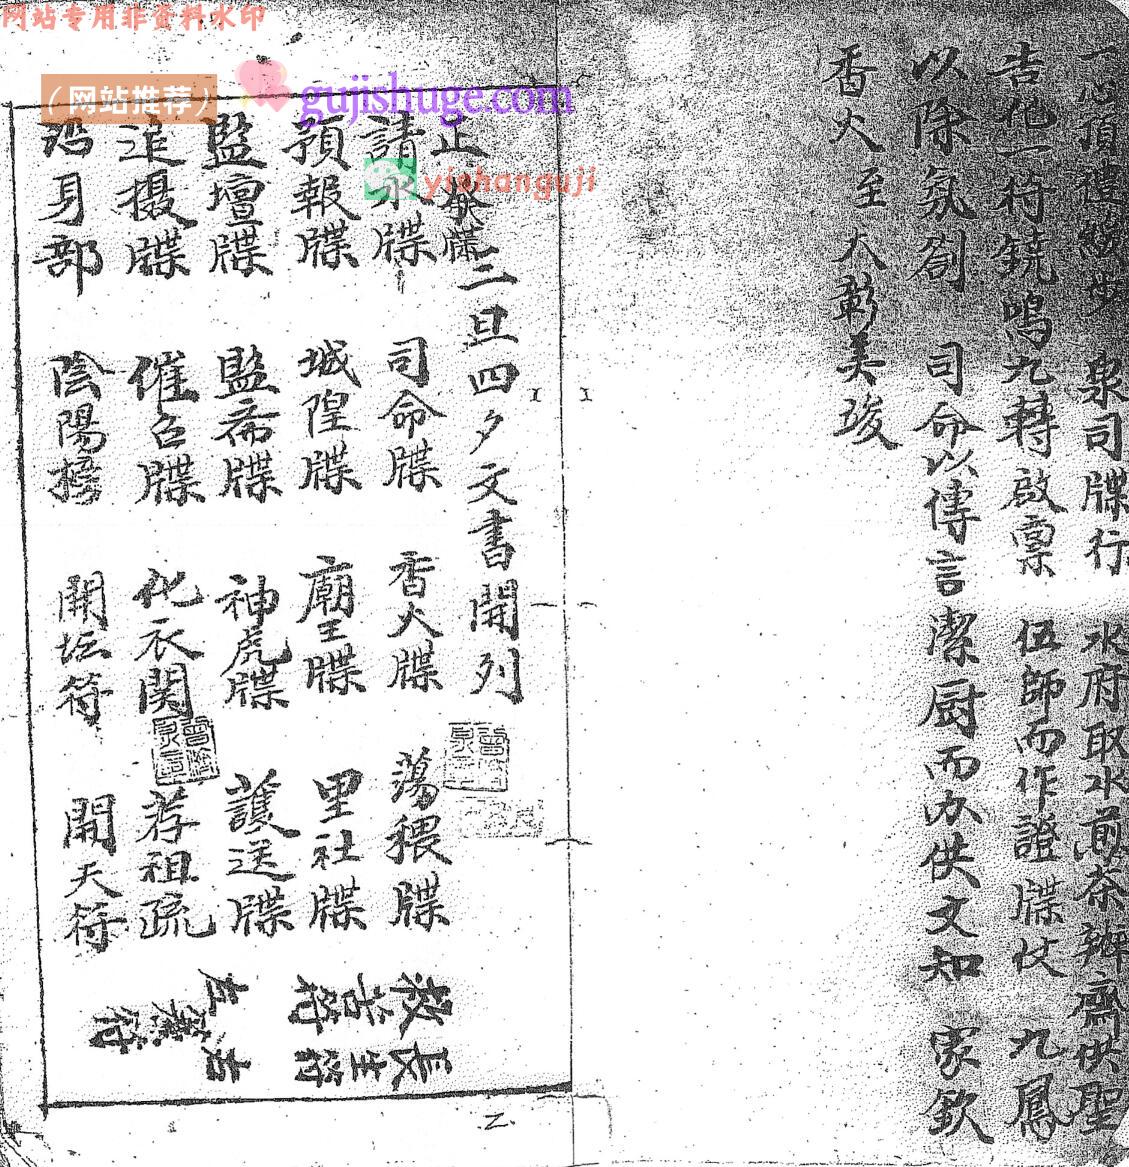 网站专用非资料水印
(网站推荐)
gujishuge.com
yishanguji
泉司牒行 水府取水煎茶辦齋供聖
吉地一持鐃鳴九轉啟稟 伍師而作證牒仗 九鳳
以除氛劄 司命以傳言潔厨而办供文知 家欽
香火至大彰美琰
止發牒三旦四夕文書開列
請水牒 司命牒 香火牒 蕩穢牒 救苦符 長生符
預報牒 城隍牒 廟王牒 里社牒
監壇牒 監斋牒 神虎牒 護送牒
追摄牒 催召牒 化衣関 荐祖疏
沿身部 陰陽榜 開坛符 開天符
左 右 符
乙